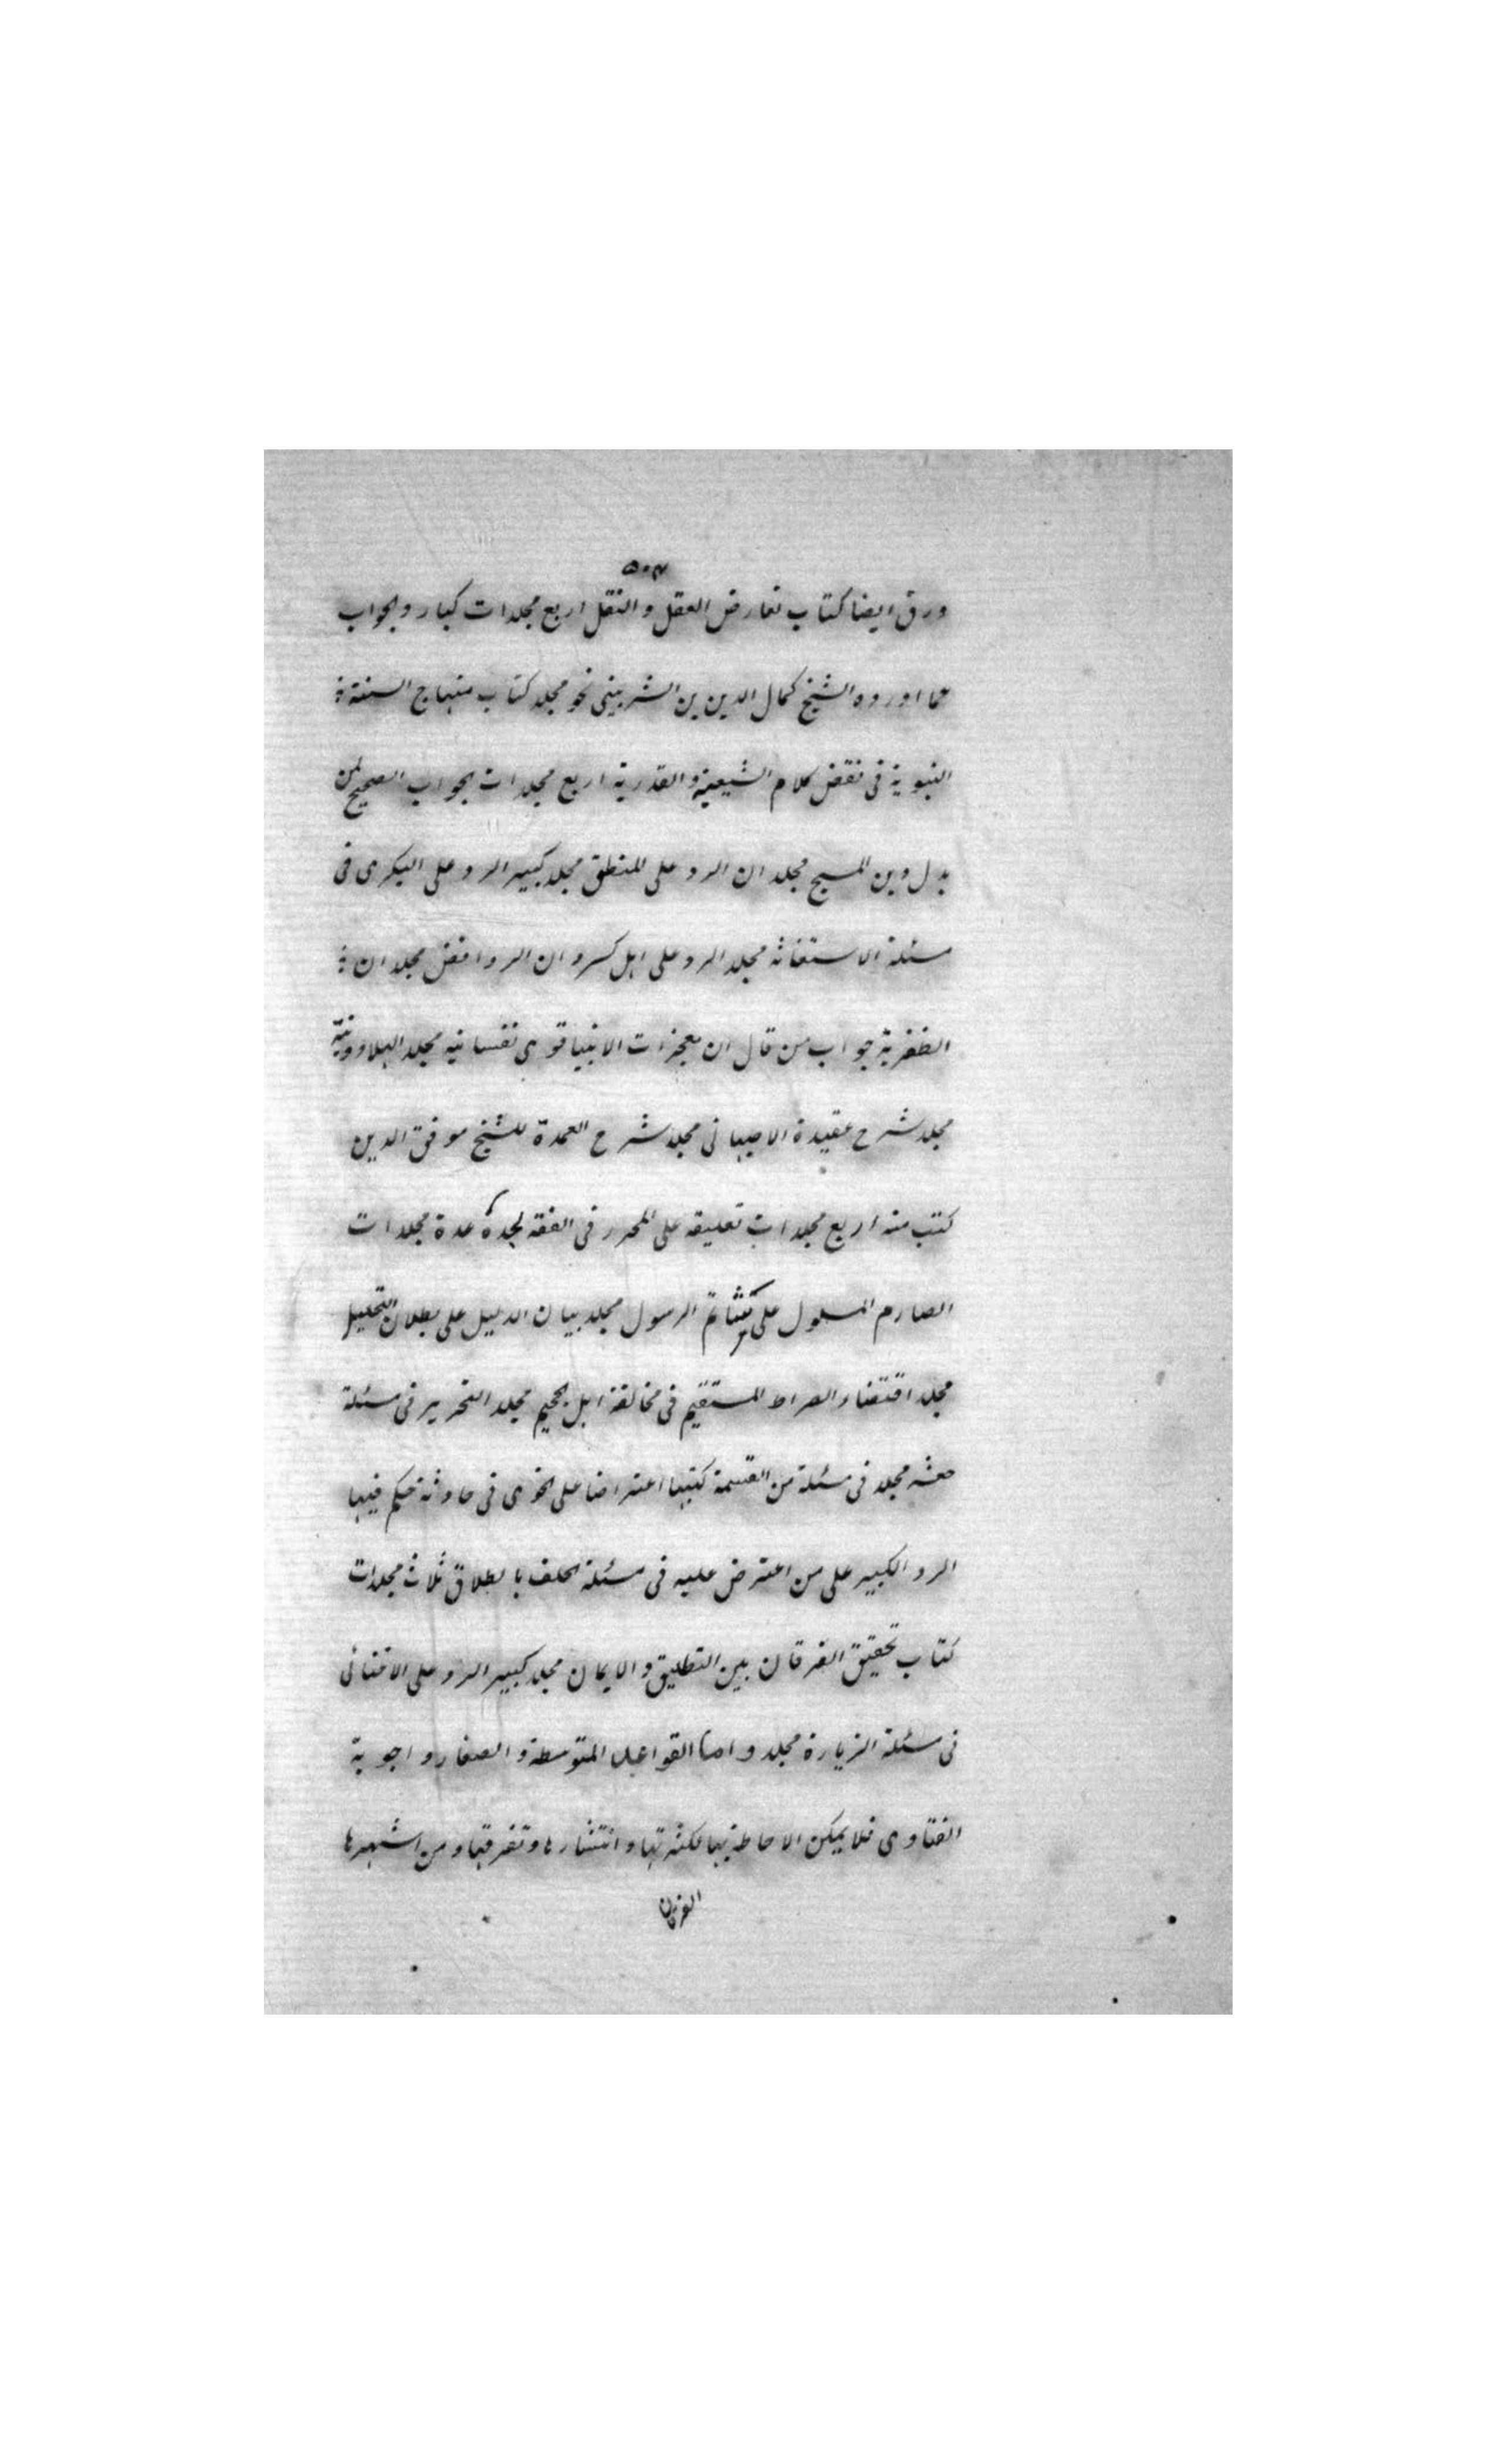 ۵۰۴
ورق ايضا كتاب تعارض العقل والنقل اربع مجلدات كبار والجواب
عما اورده الشيخ كمال الدين بن الشربينى نحو مجلد كتاب منهاج السنة
النبوية فى نقض كلام الشيعية والقدرية اربع مجلدات الجواب الصحيح لمن
بدل دين المسيح مجلدان الرد على المنطق مجلد كبير الرد على البكرى فى
مسئلة الاستغاثه مجلد الرد على اهل كسروان الروافض مجلدان
الظفرية جواب من قال ان معجزات الانبيا قوى نفسانيه مجلد الهلاوونية
مجلد شرح عقيدة الاصبهانى مجلد شرح العمدة للشيخ موفق الدين
كتب منه اربع مجلدات تعليقه على المحرر فى الفقه لجده عدة مجلدات
الصارم المسلول على شاتم الرسول مجلد بيان الدليل على بطلان التحليل
مجلد اقتضاء الصراط المستقيم فى مخالفة اهل الجحيم مجلد التحرير فى مسئلة
مجلد فى مسئلة من القسمة كتبها اعتراضا على الخوى فى حادثة حكم فيها
الرد الكبير على من اعترض عليه فى مسئلة الحلف بالطلاق ثلاث مجلدات
كتاب تحقيق الفرقان بين التطليق والايمان مجلد كبير الرد على الاخنائى
فى مسئلة الزيارة مجلد واما القواعد المتوسطة والصغار واجوبة
الفتاوى فلا يمكن الاحاطة بها لكثرتها وانتشارها وتفرقها ومن اشهرها
الفرقان